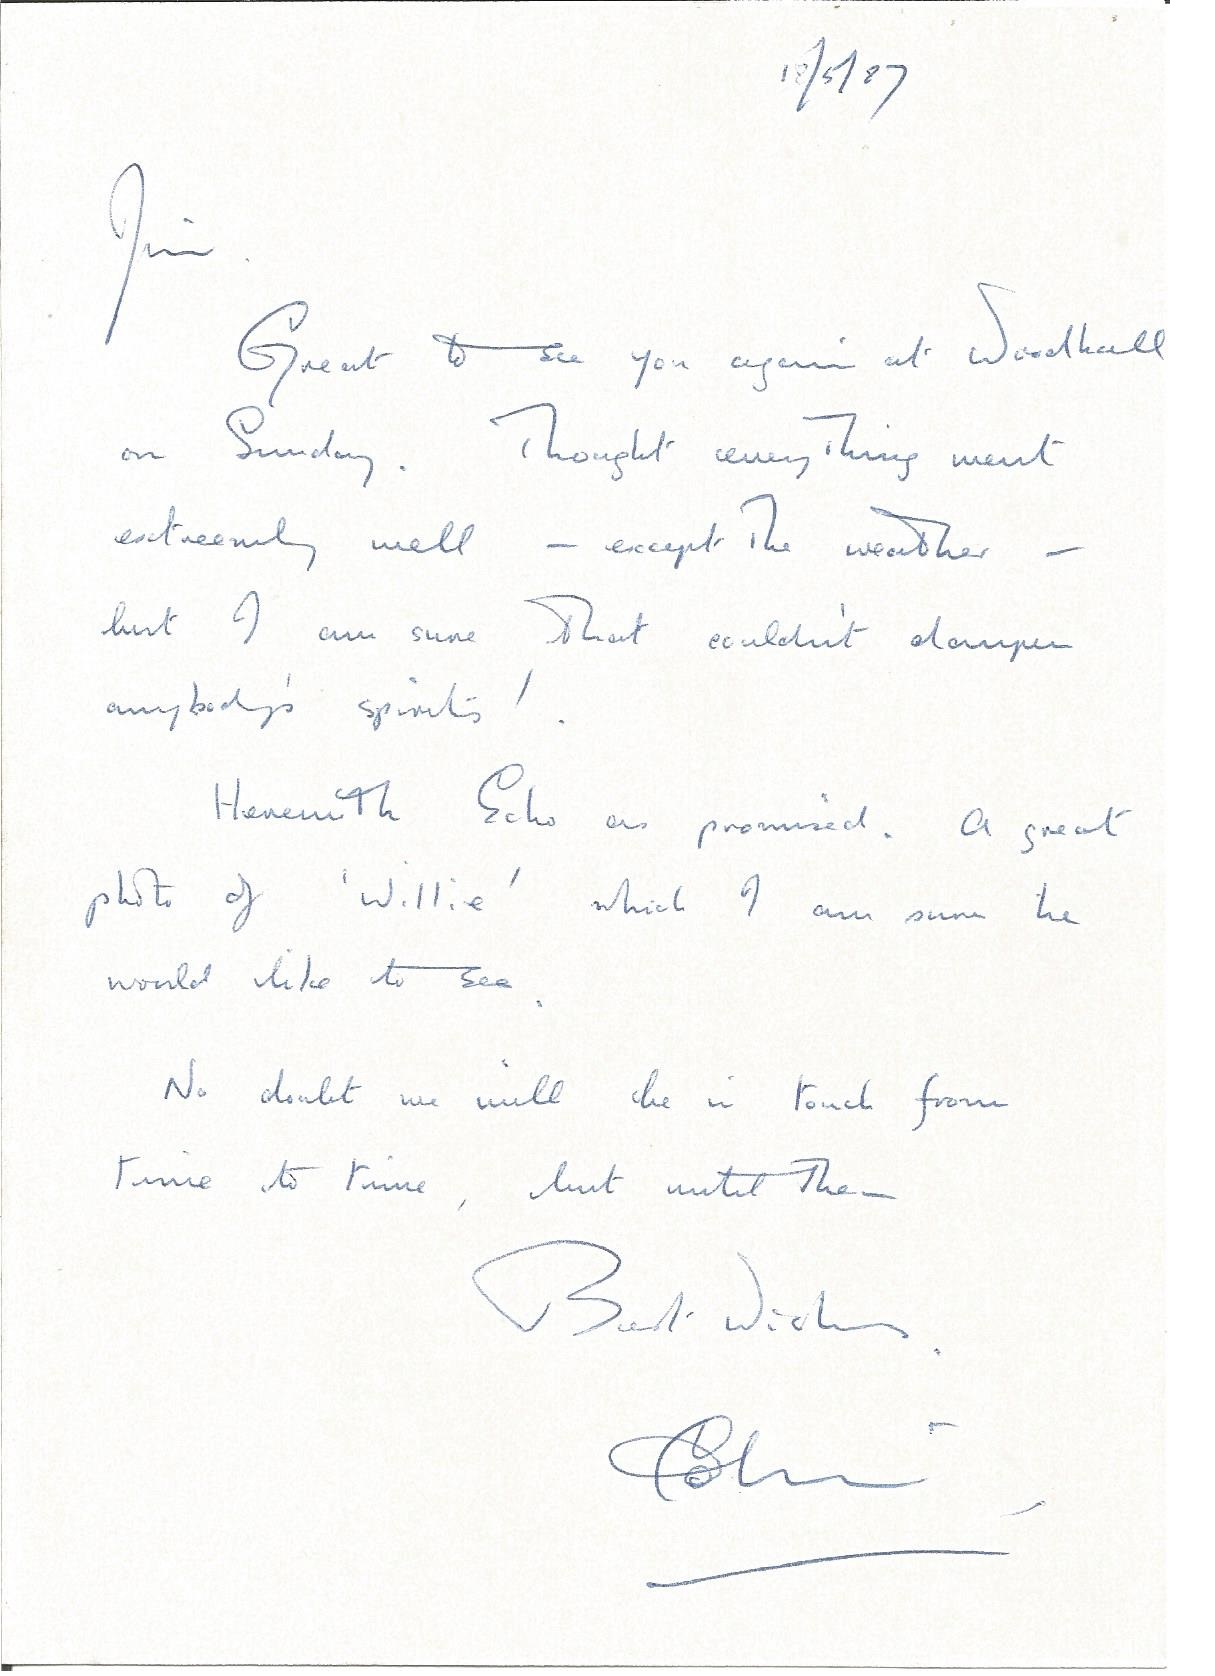 18/5/87
Jim.
Great to see you again at Woodhall
on Sunday. Thought everything went
extreemly well – except the weather –
but I am sure that couldn't dampen
anybody's spirits!.
Herewith Echo as promised. A great
photo of 'Willie' which I am sure he
would like to see.
No doubt we will be in touch from
time to time, but until then
Best Wishes.
Colin